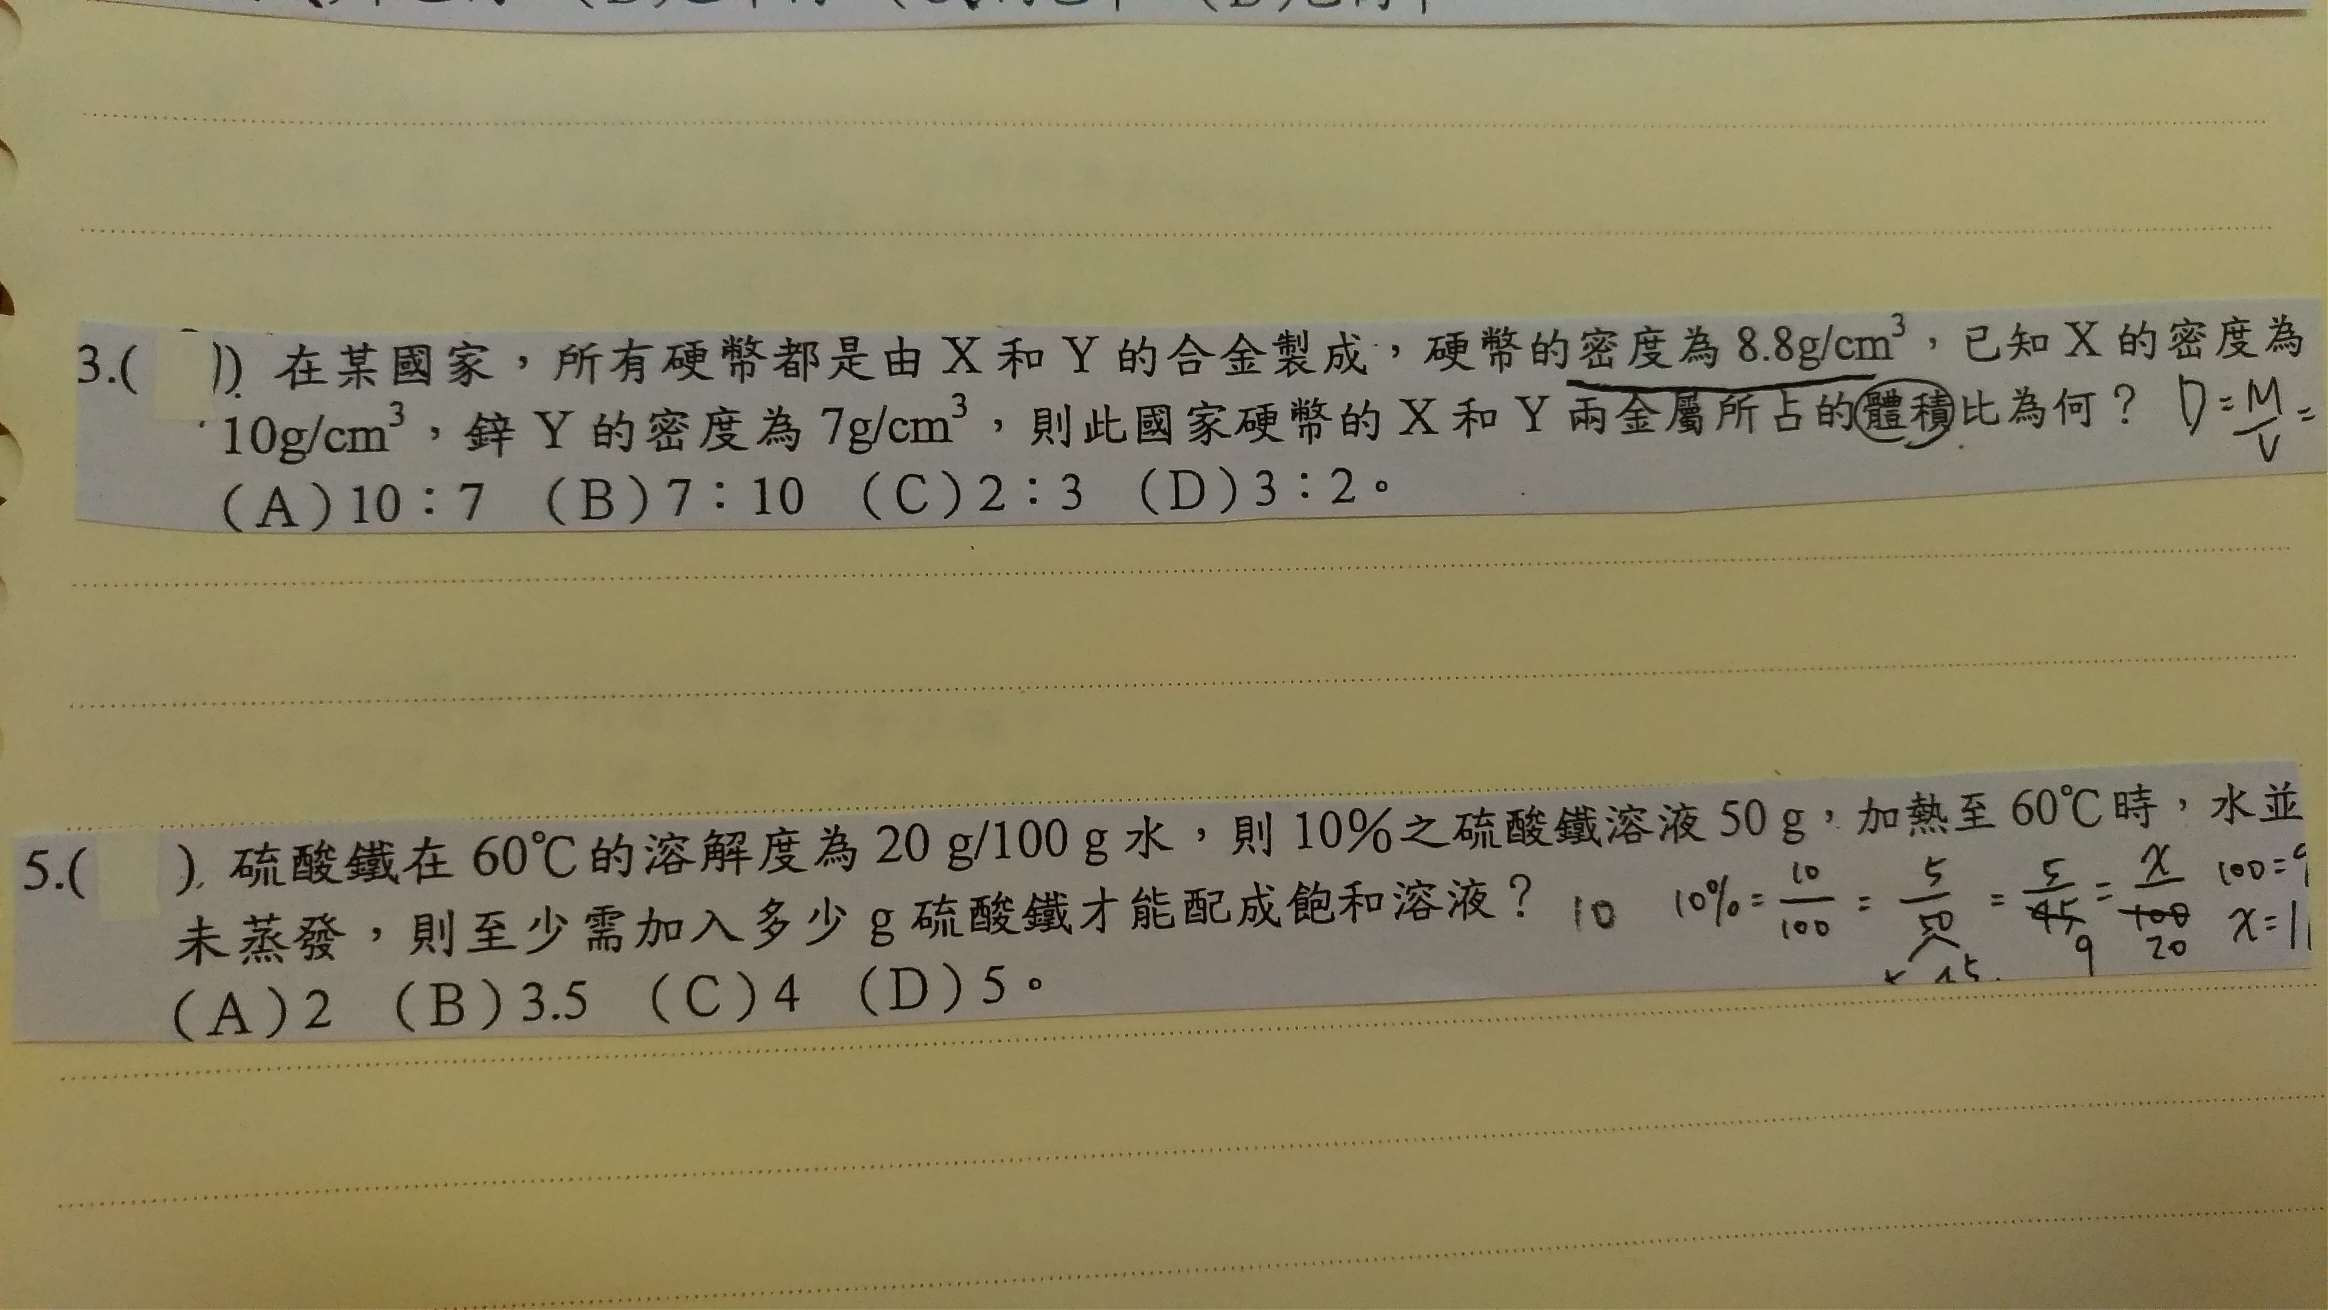 3.( ) 在某國家，所有硬幣都是由 X 和 Y 的合金製成，硬幣的密度為 8.8g/cm³，已知 X 的密度為
10g/cm³，鋅 Y 的密度為 7g/cm³，則此國家硬幣的 X 和 Y 兩金屬所占的體積比為何？ D=M/V=
（A）10：7 （B）7：10 （C）2：3 （D）3：2。
5.( ) 硫酸鐵在 60℃的溶解度為 20 g/100 g 水，則 10％之硫酸鐵溶液 50 g，加熱至 60℃時，水並
未蒸發，則至少需加入多少 g 硫酸鐵才能配成飽和溶液？ 10 10%=10/100=5/50=5/45=x/100
9 20
（A）2 （B）3.5 （C）4 （D）5。